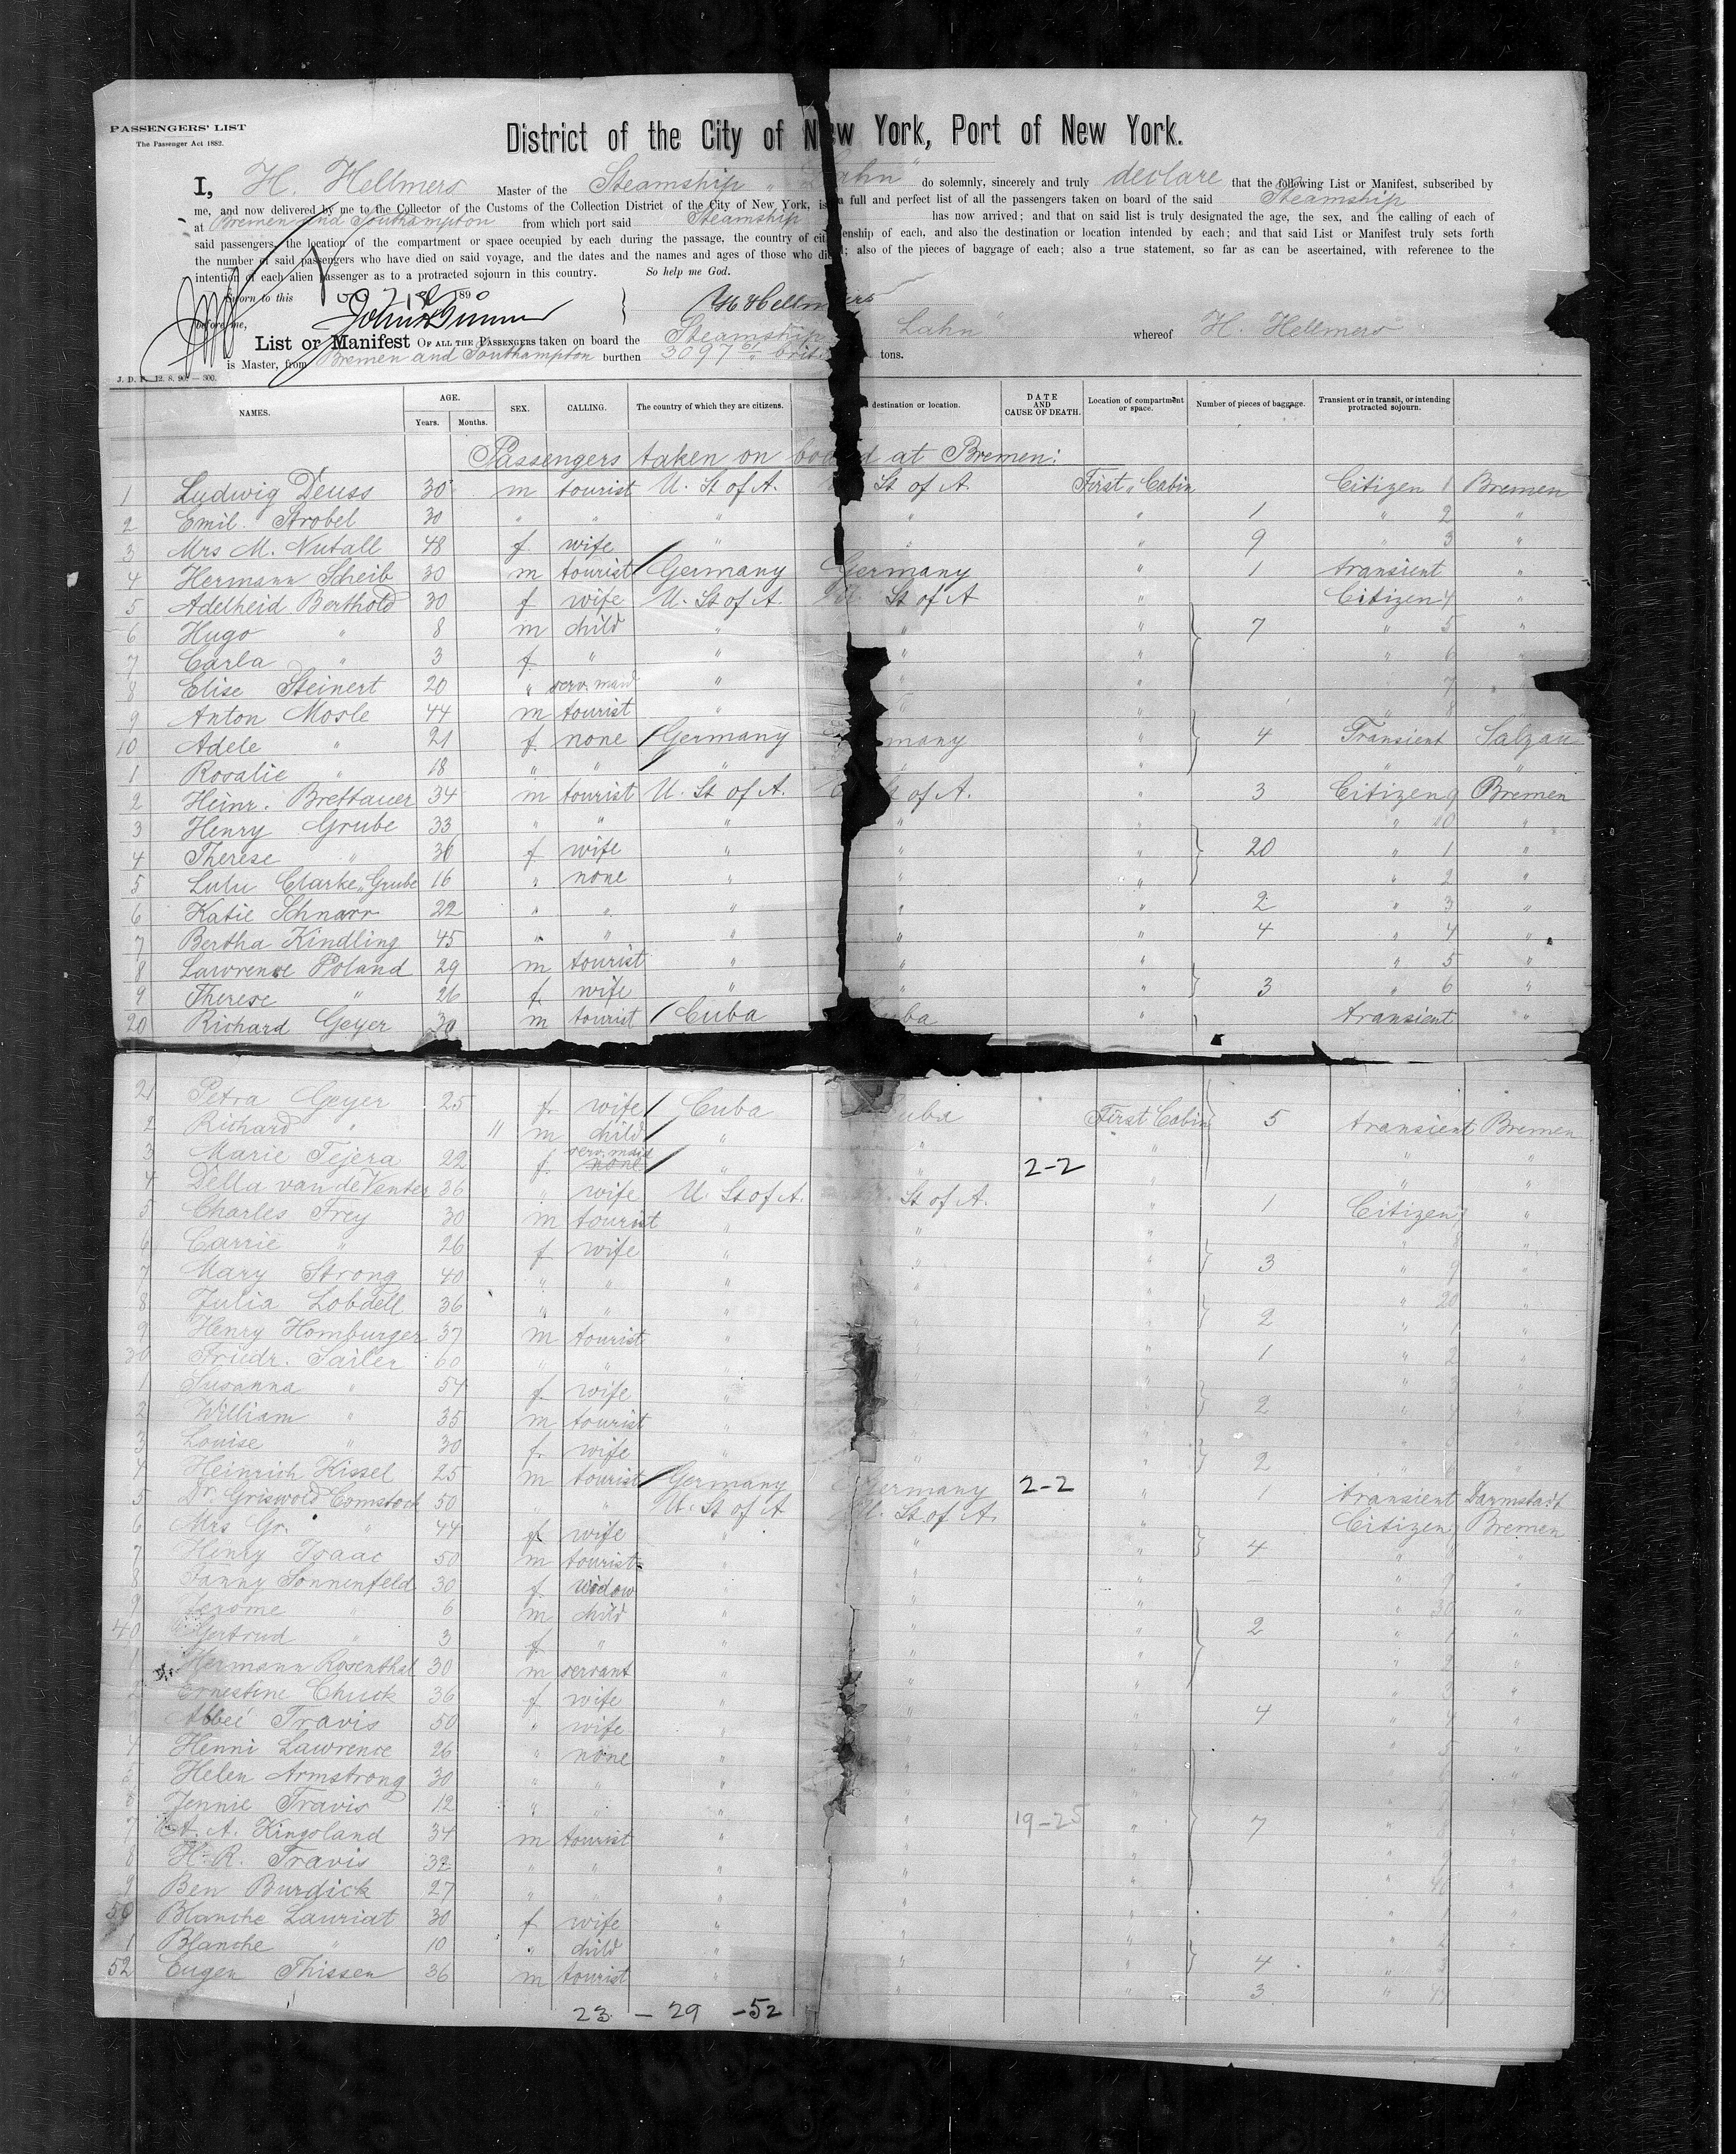 PASSENGERS' LIST
The Passenger Act 1882.
District of the City of New York, Port of New York.
I, H. Hellmers Master of the Steamship "Lahn" do solemnly, sincerely and truly declare that the following List or Manifest, subscribed by
me, and now delivered by me to the Collector of the Customs of the Collection District of the City of New York, is a full and perfect list of all the passengers taken on board of the said Steamship
at Bremen and Southampton from which port said Steamship has now arrived; and that on said list is truly designated the age, the sex, and the calling of each of
said passengers, the location of the compartment or space occupied by each during the passage, the country of citizenship of each, and also the destination or location intended by each; and that said List or Manifest truly sets forth
the number of said passengers who have died on said voyage, and the dates and the names and ages of those who died; also of the pieces of baggage of each; also a true statement, so far as can be ascertained, with reference to the
intention of each alien passenger as to a protracted sojourn in this country. So help me God.
Sworn to this 189
before me, H Hellmers
List or Manifest OF ALL THE PASSENGERS taken on board the Steamship Lahn" whereof H. Hellmers
is Master, from Bremen and Southampton burthen 3097 brit. tons.
J. D. P. 12. 8. 90. — 300.
NAMES. AGE. Years. Months. SEX. CALLING. The country of which they are citizens. destination or location. DATE AND CAUSE OF DEATH. Location of compartment or space. Number of pieces of baggage. Transient or in transit, or intending protracted sojourn.
Passengers taken on board at Bremen:
1 Ludwig Deuss 30 m tourist U. St of A. St of A. First „ Cabin Citizen 1 Bremen
2 Emil Strobel 30 " " " " " 1 " 2 "
3 Mrs M. Nutall 48 f. wife " " " 9 " 3 "
4 Hermann Scheib 30 m tourist Germany Germany " 1 transient "
5 Adelheid Berthold 30 f wife U. St of A. U. St of A " Citizen 4 "
6 Hugo " 8 m child " " " 7 " 5 "
7 Carla " 3 f. " " " " " 6 "
8 Elise Steinert 20 " serv. maid " " " 7 "
9 Anton Mosle 44 m tourist " " " " 8 "
10 Adele " 21 f. none Germany Germany " 4 Transient Salzau
1 Rosalie " 18 " " " " " " "
2 Heinr. Brettauer 34 m tourist U. St of A. St of A. " 3 Citizen 9 Bremen
3 Henry Grube 33 " " " " " " 10 "
4 Therese " 36 f wife " " " 20 " 1 "
5 Lulu Clarke „ Grube 16 " none " " " " 2 "
6 Katie Schnarr 22 " " " " " 2 " 3 "
7 Bertha Kindling 45 " " " " " 4 " 4 "
8 Lawrence Poland 29 m tourist " " " " 5 "
9 Therese " 26 f. wife " " " 3 " 6 "
20 Richard Geyer 30 m tourist Cuba Cuba " transient "
21 Petra Geyer 25 f. wife Cuba Cuba First Cabin 5 transient Bremen
2 Richard " 11 m child " " " " "
3 Marie Tejera 22 f. serv. maid none " " 2-2 " " "
4 Della van de Venter 36 " wife U. St of A. St of A. " 1 Citizen 7 "
5 Charles Frey 30 m tourist " " " " 8 "
6 Carrie " 26 f wife " " " 3 " 9 "
7 Mary Strong 40 " " " " " " 20 "
8 Julia Lobdell 36 " " " " " 2 " 1 "
9 Henry Homburger 37 m tourist " " " 1 " 2 "
30 Friedr. Sailer 60 " " " " " " 3 "
1 Susanna " 54 f. wife " " " 2 " 4 "
2 William " 35 m tourist " " " "
3 Louise " 30 f. wife " " " 2 " "
4 Heinrich Kissel 25 m tourist Germany Germany 2-2 " 1 transient Darmstadt
5 Dr. Griswold Comstock 50 " " U. St of A U. St of A. " Citizen Bremen
6 Mrs Gr. " 44 f wife " " " 4 " "
7 Henry Isaac 50 m tourist " " " — " 9 "
8 Fanny Sonnenfeld 30 f widow " " " " 30 "
9 Jerome " 6 m child " " " 2 " 1 "
40 Gertrud " 3 f " " " " " 2 "
1 Hermann Rosenthal 30 m servant " " " " 3 "
2 Ernestine Chuck 36 f wife " " " 4 " 4 "
Abbeé Travis 50 " wife " " " " 5 "
4 Henni Lawrence 26 " none " " " " "
5 Helen Armstrong 30 " " " " " " "
6 Jennie Travis 12 " " " " 19-25 " 7 " 8 "
7 A. A. Kingsland 34 m tourist " " " " 9 "
8 H. R. Travis 32 " " " " " " 40 "
9 Ben Burdick 27 " " " " " " 1 "
50 Blanche Lauriat 30 f wife " " " " 2 "
1 Blanche " 10 " child " " " 4 " 3
52 Eugen Thissen 36 m tourist " " " 3 " 44
23 — 29 -52